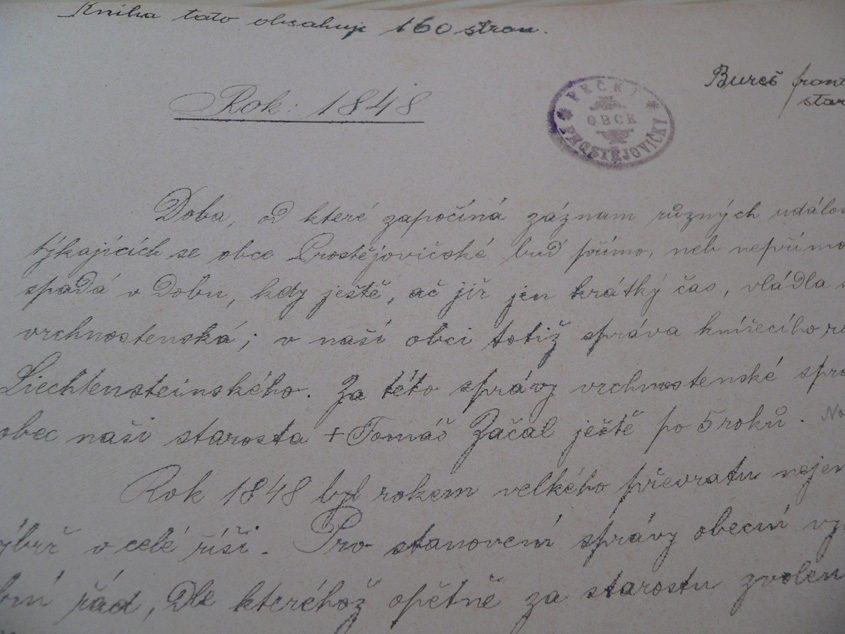 Kniha tato obsahuje 160 stran.
Bureš
star
Rok: 1848
OBCE
PROSTĚJOVIČKY
Doba, od které započíná záznam různých událo
týkajících se obce Prostějovičské buď přímo, neb nepřímo
spadá v dobu, kdy ještě, ač již jen krátký čas, vládla
vrchnostenská; v naší obci totiž správa knížecího
Liechtensteinského. Za této správy vrchnostenské spra
obec naši starosta + Tomáš Začal ještě po 5 roků.
Rok 1848 byl rokem velkého převratu nejen
nýbrž v celé říši. Pro stanovení správy obecní vy
řád, dle kteréhož opětně za starostu zvolen